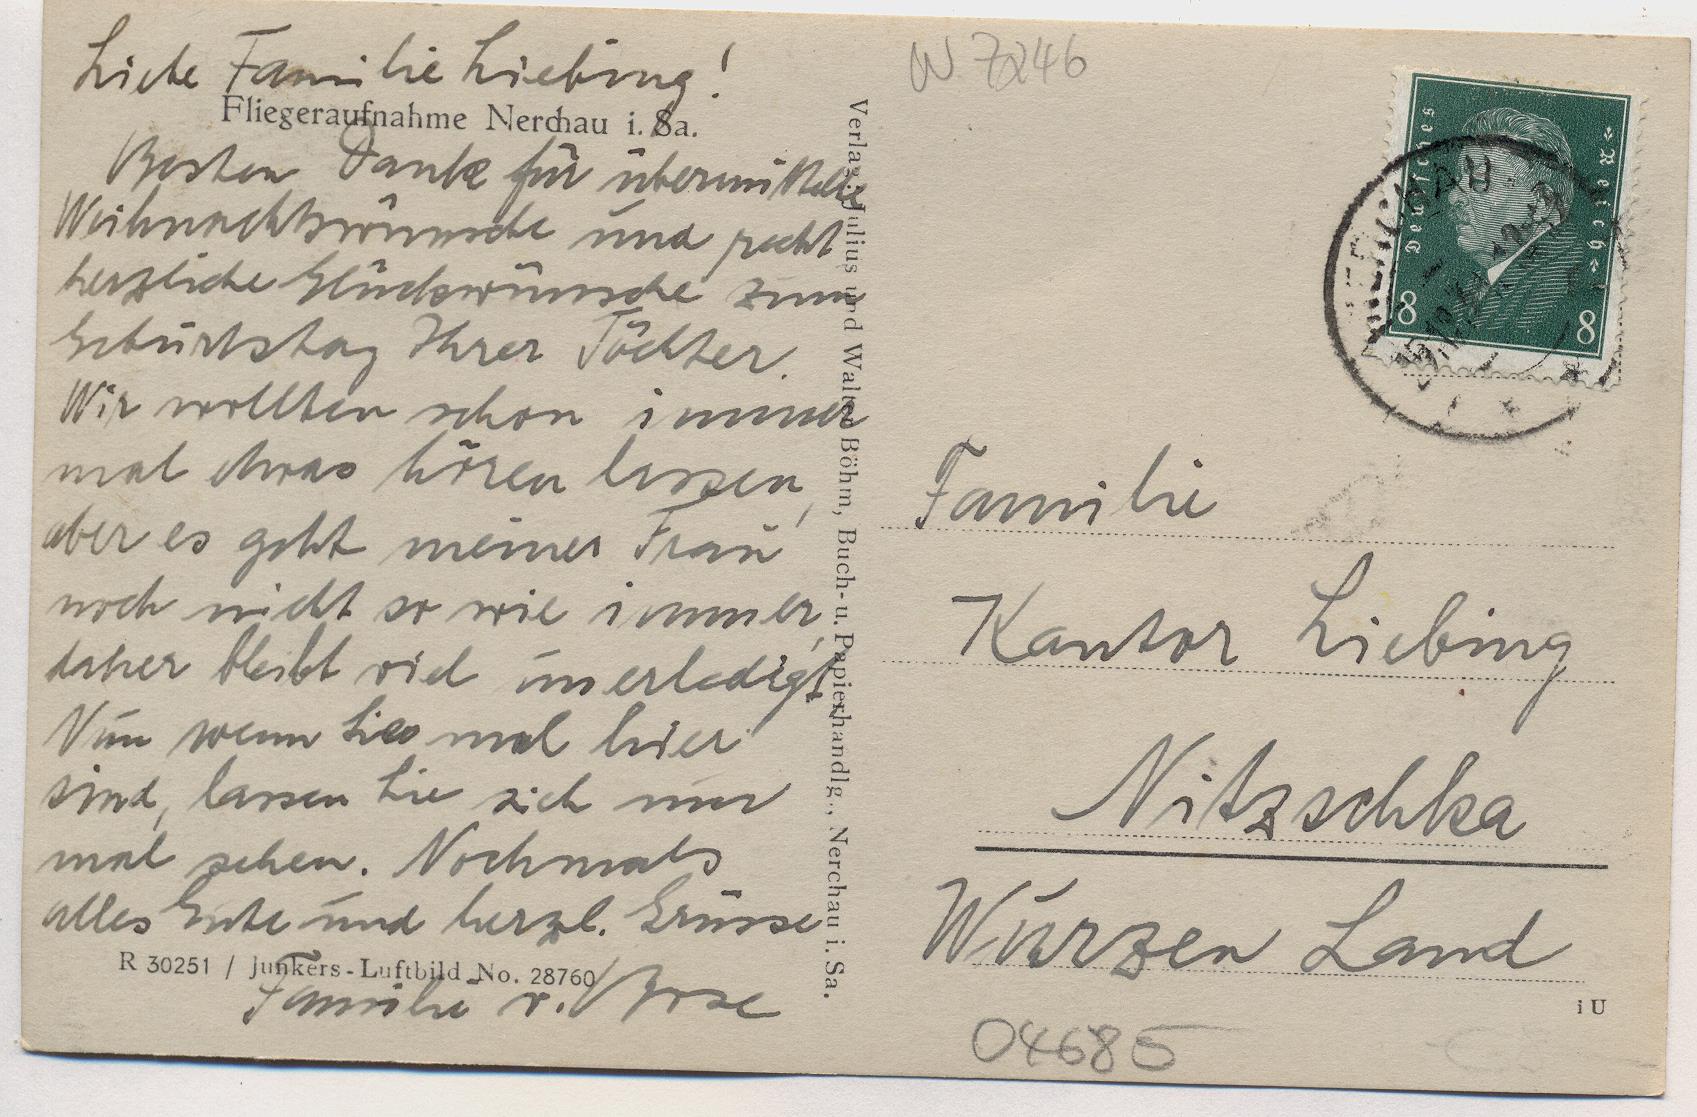 Liebe Familie Liebing!
Fliegeraufnahme Nerchau i. Sa.
Besten Dank für übermittelte
Weihnachtswünsche und recht
herzliche Glückwünsche zum
Geburtstag Ihrer Töchter.
Wir wollten schon immer
mal etwas hören lassen,
aber es geht meiner Frau
noch nicht so wie immer,
daher bleibt viel unerledigt.
Nun wenn Sie mal hier
sind, lassen Sie sich nur
mal sehen. Nochmals
alles Gute und herzl. Grüsse
R 30251 / Junkers-Luftbild No. 28760
Familie v.
Verlag: Julius und Walter Böhm, Buch- u. Papierhandlg., Nerchau i. Sa.
W 7246
Deutsches Reich
8 8
NERCHAU
Familie
Kantor Liebing
Nitzschka
Wurzen Land
i U
04685